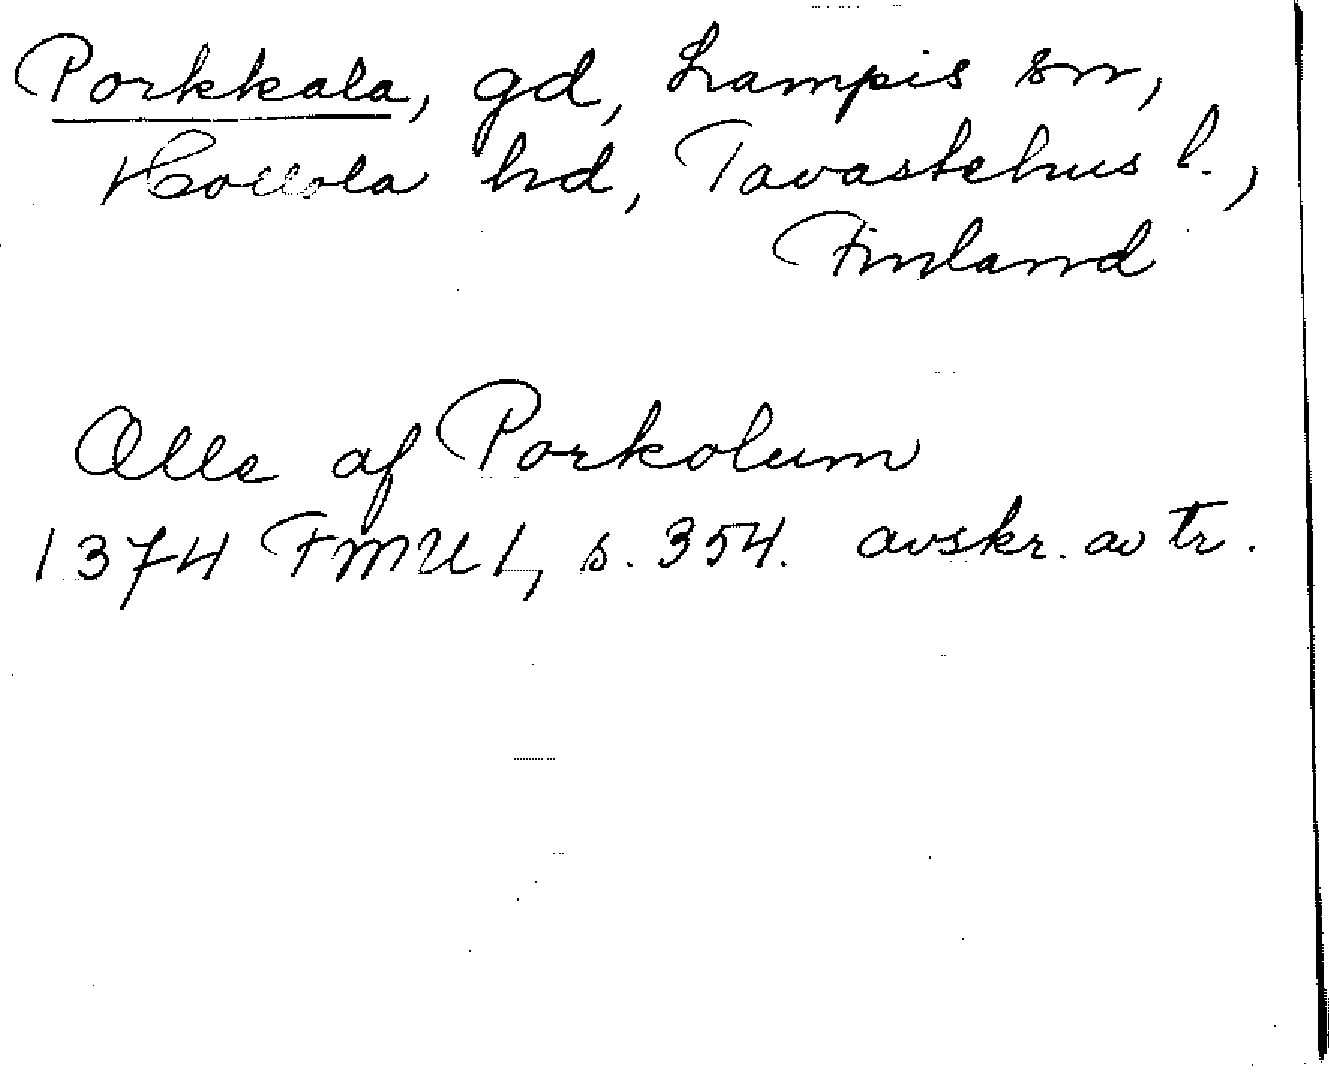 Porkkala, gd, Lampis sn,
Hollola hd, Tavastehus l.,
Finland
Olle af Porkolum
1374 FMU 1, s. 354. avskr. av tr.